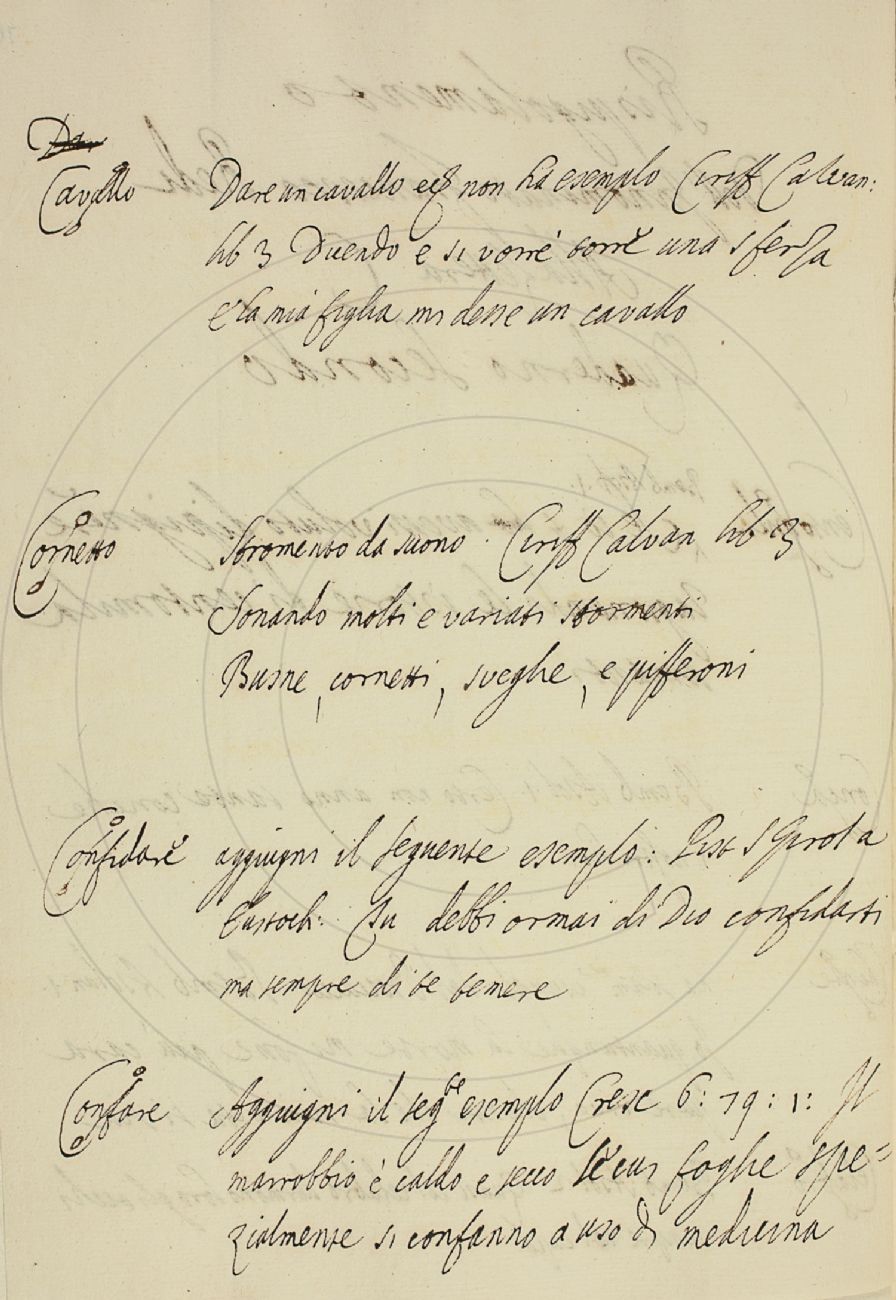 Dar
Cavallo Dare un cavallo ecc non ha esemplo Ciriff Calvan:
lib 3 Dicendo e si vorrè torre una sferza
E la mia figlia mi desse un cavallo
Cornetto Stromento da suono. Ciriff Calvan lib 3
Sonando molti e variati stormenti
Busne, cornetti, sveglie, e pifferoni
Confidare aggiugni il seguente esemplo: Pist S Girol a
Eustoch: Tu debbi ormai di Dio confidarti
ma sempre di te temere
Confare Aggiugni il segte esemplo Cresc 6: 79: 1: Il
marrobbio è caldo e secco le cui foglie spe=
zialmente si confanno a uso di medicina